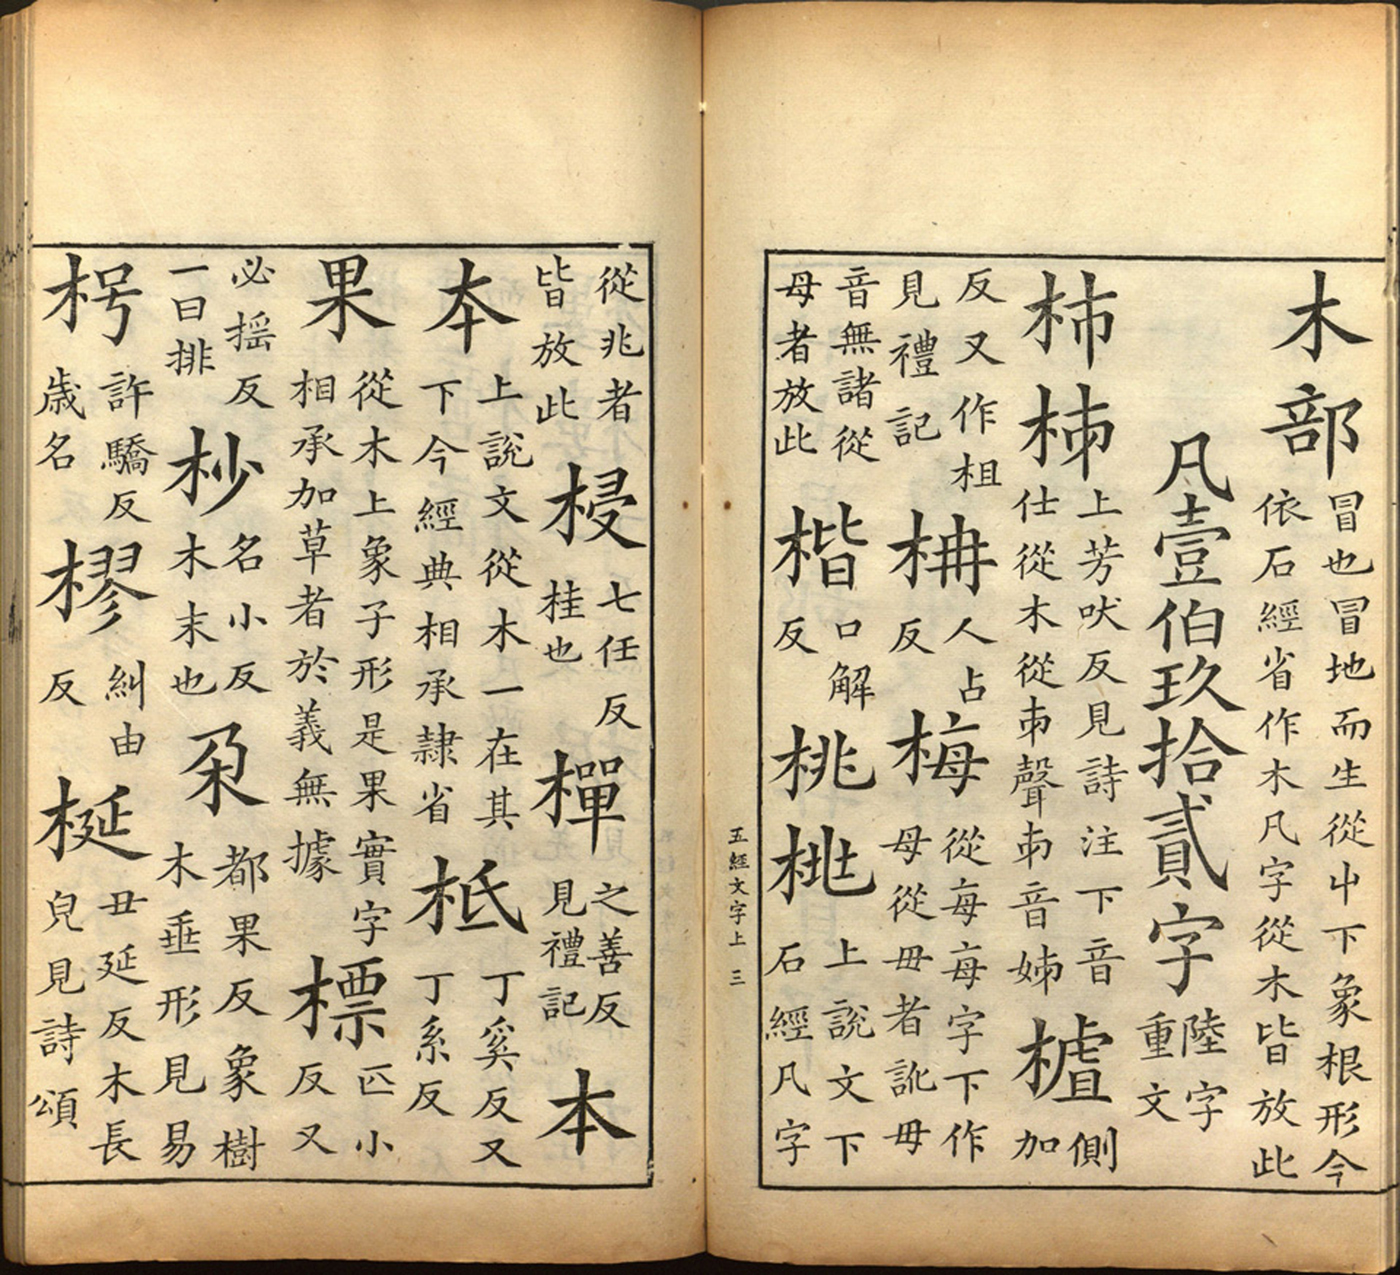 木部冒也冒地而生從屮下象根形今依石經省作木凡字從木皆放此
凡壹伯玖拾貳字陸字重文
柹上芳吠反見詩注下音仕從木從𠂔聲𠂔音姊樝側加
反又作柤見禮記枏人占反梅從每每字下作母從毋者訛毋
音無諸從母者放此楷口解反桃上說文下石經凡字
五經文字上 三
從兆者皆放此梫七任反桂也樿之善反見禮記本
夲上說文從木一在其下今經典相承隷省柢丁奚反又丁系反
果從木上象子形是果實字相承加草者於義無據標匹小反又
必摇反一曰排杪名小反木末也朶都果反象樹木垂形見易
枵許驕反歲名樛糾由反梴丑延反木長皃見詩頌